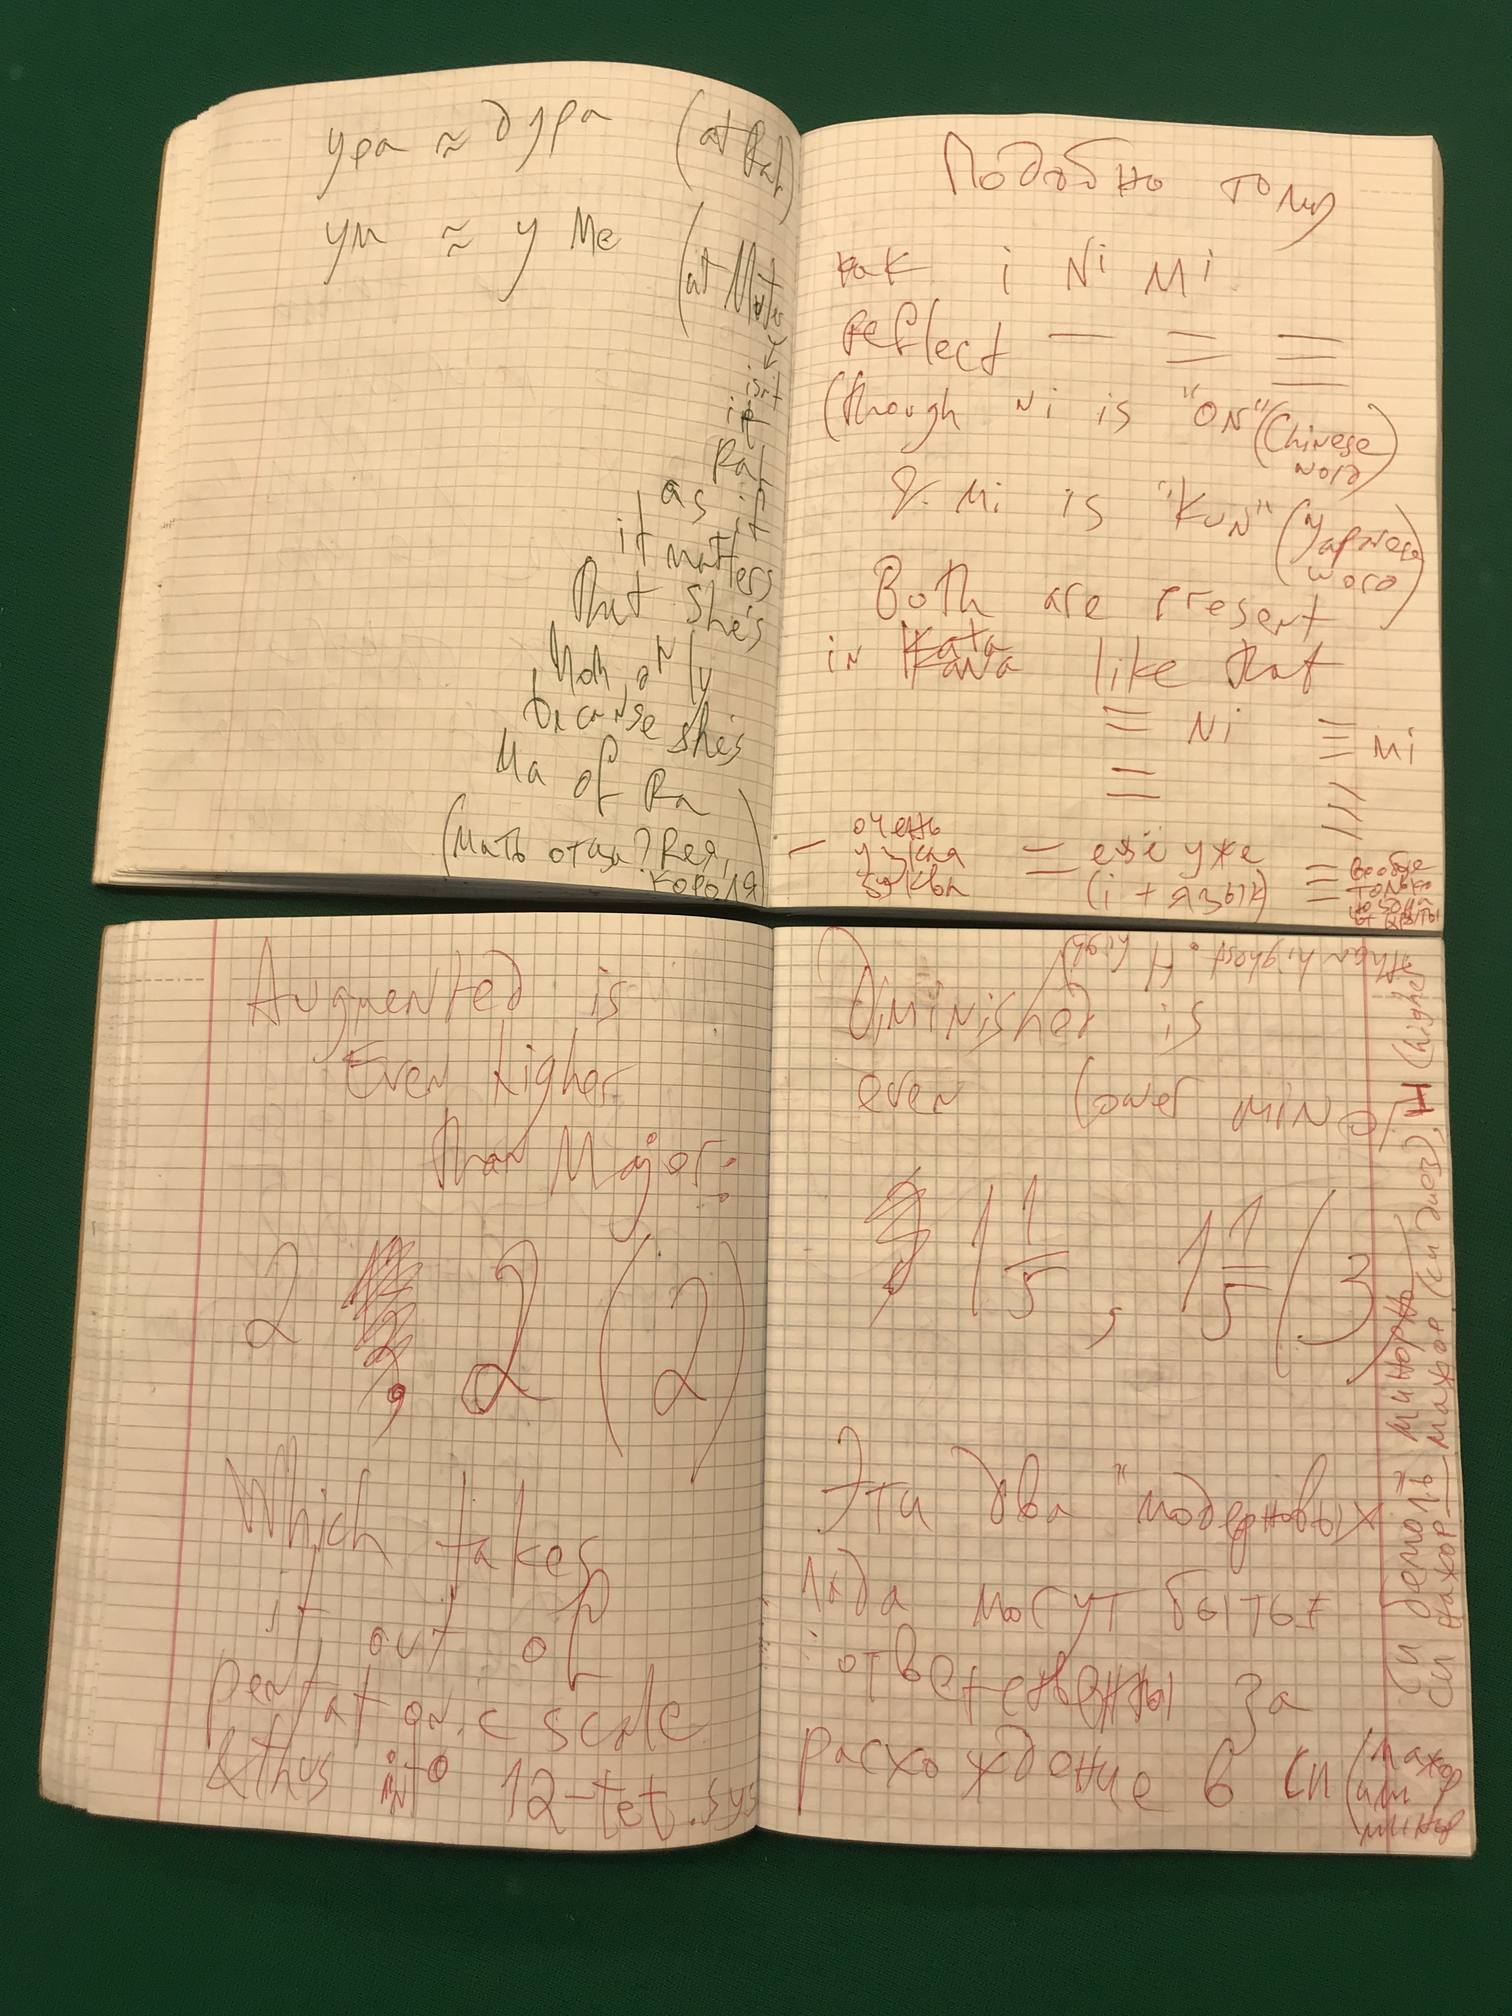 ура ≈ дура (at Rah)
ум ≈ у Me
(at Mater
isn't
it
Rah
as if
it matters
that she's
Mom, only
because she's
Ma of Ra
(мать отца? Rея,
короля)
Подобно тому
как i Ni Mi
reflect — = ≡
(though Ni is "ON" (Chinese
word)
& Mi is "KUN" (Yapnese
word)
Both are present
in Kata
kana like that
= Ni ≡ Mi
=
— очень
узкая
буква
= ещё уже
(i + язык)
≡ вообще
только
Augmented is
Even higher
than Major:
2, 2 (2)
Which takes
it out of
pentatonic scale
& thus into 12-tet. sys
Diminished is
even lower minor
1 1/5, 1 1/5 (3)
Эти два "модерновых"
лада могут быть
ответственны за
расхождение в си (мажор
или
минор
Си бемоль минорно
Си мажор мажор (си диез), H (higher
than highest. H high)